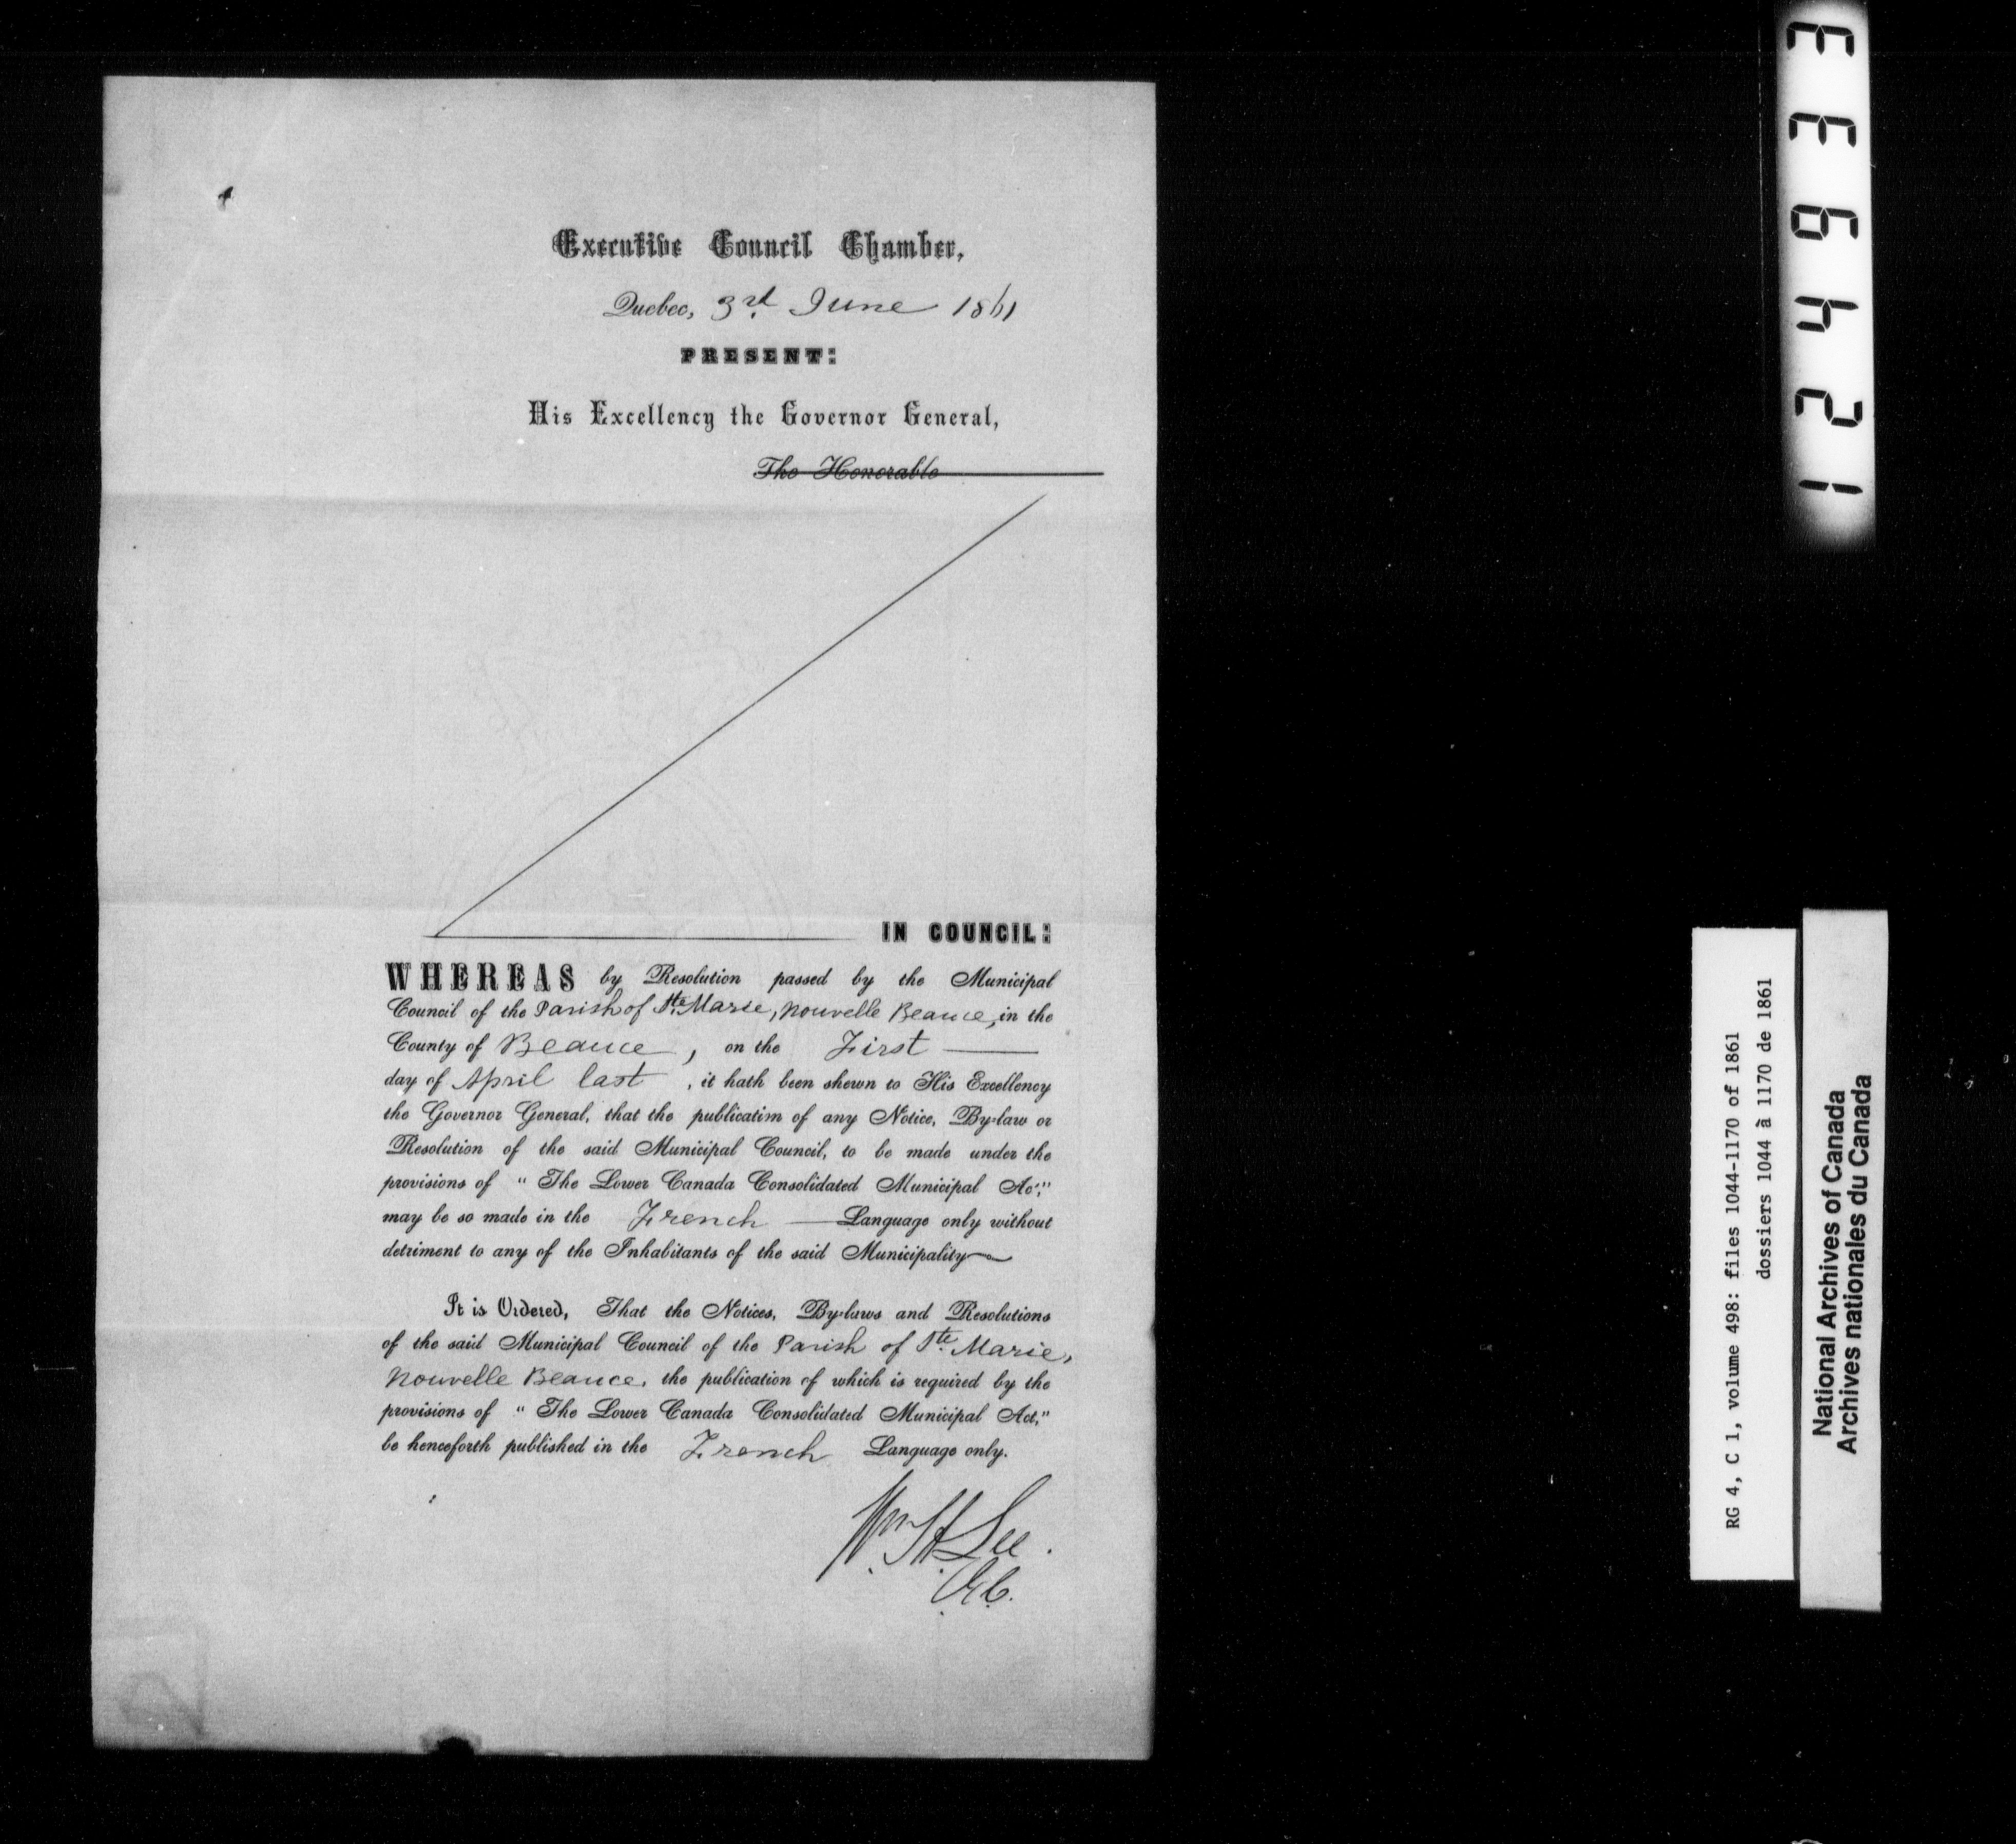 Executive Council Chamber,
Quebec, 3rd June 1861
PRESENT:
His Excellency the Governor General,
The Honorable
IN COUNCIL:
WHEREAS by Resolution passed by the Municipal
Council of the Parish of Ste. Marie, Nouvelle Beauce, in the
County of Beauce, on the First
day of April last, it hath been shewn to His Excellency
the Governor General, that the publicatim of any Notice, By-law or
Resolution of the said Municipal Council, to be made under the
provisions of "The Lower Canada Consolidated Municipal Act,"
may be so made in the French Language only without
detriment to any of the Inhabitants of the said Municipality
It is Ordered, That the Notices, By-laws and Resolutions
of the said Municipal Council of the Parish of Ste. Marie,
Nouvelle Beauce, the publication of which is required by the
provisions of "The Lower Canada Consolidated Municipal Act,"
be henceforth published in the French Language only.
Wm H Lee.
C.E.C.
124933
RG 4, C 1, volume 498: files 1044-1170 of 1861
dossiers 1044 à 1170 de 1861
National Archives of Canada
Archives nationales du Canada